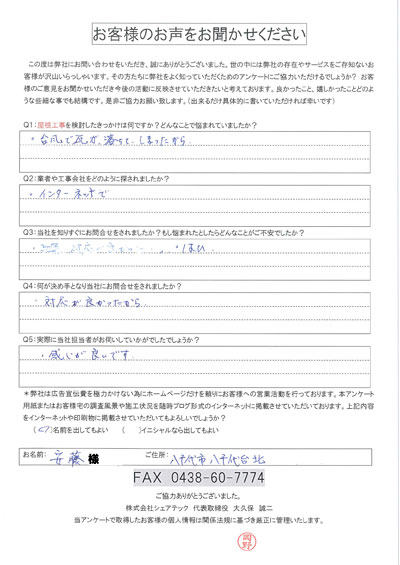 お客様のお声をお聞かせください
この度は弊社にお問い合わせをいただき、誠にありがとうございました。世の中には弊社の存在やサービスをご存知ないお
客様が沢山いらっしゃいます。その方たちに弊社をよく知っていただくためのアンケートにご協力いただけるでしょうか？ お客
様のご意見をお聞かせいただき今後の活動に反映させていただきたいと考えております。良かったこと、嬉しかったことどのよ
うな些細な事でも結構です。是非ご協力お願い致します。（出来るだけ具体的に書いていただければ幸いです）
Q1：屋根工事を検討したきっかけは何ですか？どんなことで悩まれていましたか？
・台風で瓦が落ちてしまったから
Q2：業者や工事会社をどのように探されましたか？
・インターネットで
Q3：当社を知りすぐにお問合せをされましたか？もし悩まれたとしたらどんなことがご不安でしたか？
・はい
Q4：何が決め手となり当社にお問合せをされましたか？
・対応が良かったから
Q5：実際に当社担当者がお伺いしていかがでしたでしょうか？
・感じが良いです
＊弊社は広告宣伝費を極力かけない為にホームページだけを頼りにお客様への営業活動を行っております。本アンケート
用紙またはお客様宅の調査風景や施工状況を随時ブログ形式のインターネットに掲載させていただいております。上記内容
をインターネットや印刷物に掲載させていただいてもよろしいでしょうか？
（✓）名前を出してもよい （ ）イニシャルなら出してもよい
お名前： 安藤 様 ご住所： 八千代市八千代台北
FAX 0438-60-7774
ご協力ありがとうございました。
株式会社シェアテック 代表取締役 大久保 誠二
当アンケートで取得したお客様の個人情報は関係法規に基づき厳正に管理いたします。